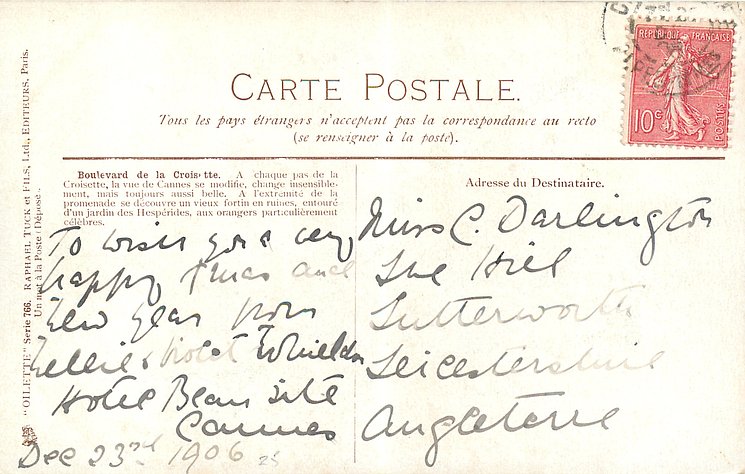 CARTE POSTALE.
Tous les pays étrangers n'acceptent pas la correspondance au recto
(se renseigner à la poste).
RÉPUBLIQUE FRANÇAISE
10c
POSTES
Boulevard de la Croisette. A chaque pas de la
Croisette, la vue de Cannes se modifie, change insensible-
ment, mais toujours aussi belle. A l'extrémité de la
promenade se découvre un vieux fortin en ruines, entouré
d'un jardin des Hespérides, aux orangers particulièrement
célèbres.
To wish you a very
happy Xmas and
New Year from
Nellie & Violet Whieldon
Hotel Beau Site
Cannes
Dec 23rd 1906
Adresse du Destinataire.
Miss C. Darlington
The Hill
Lutterworth
Leicestershire
Angleterre
"OILETTE" Serie 766. RAPHAEL TUCK et FILS, Ltd., EDITEURS, Paris.
Un mot à la Poste (Déposé).